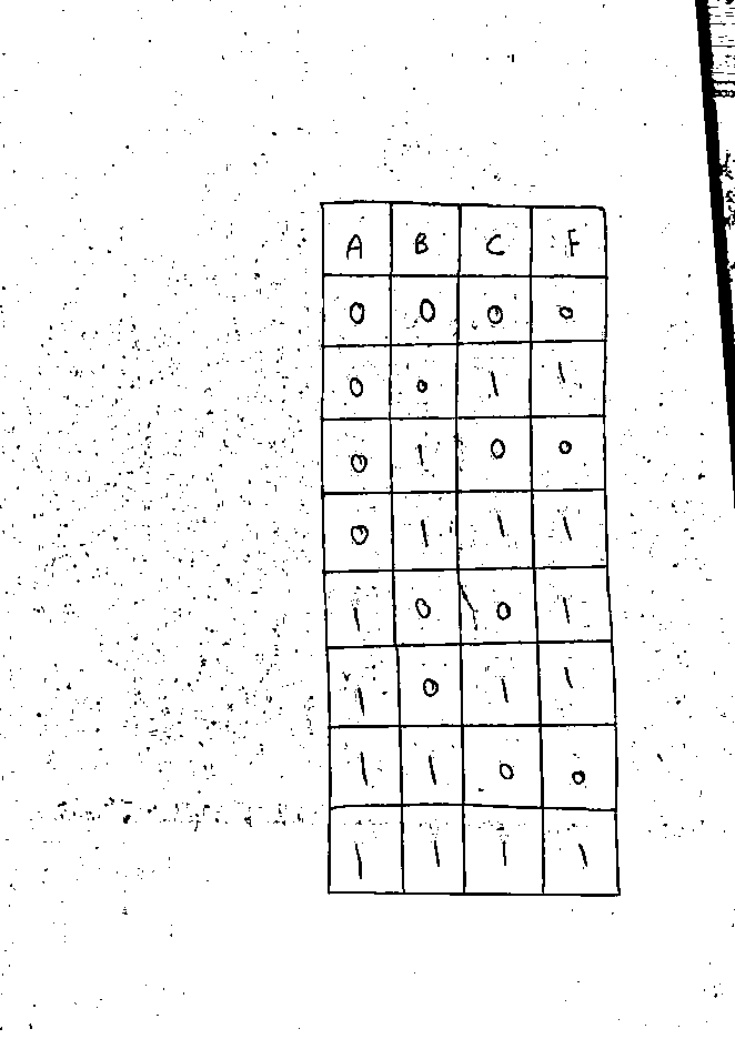 A B C F
0 0 0 0
0 0 1 1
0 1 0 0
0 1 1 1
1 0 0 1
1 0 1 1
1 1 0 0
1 1 1 1